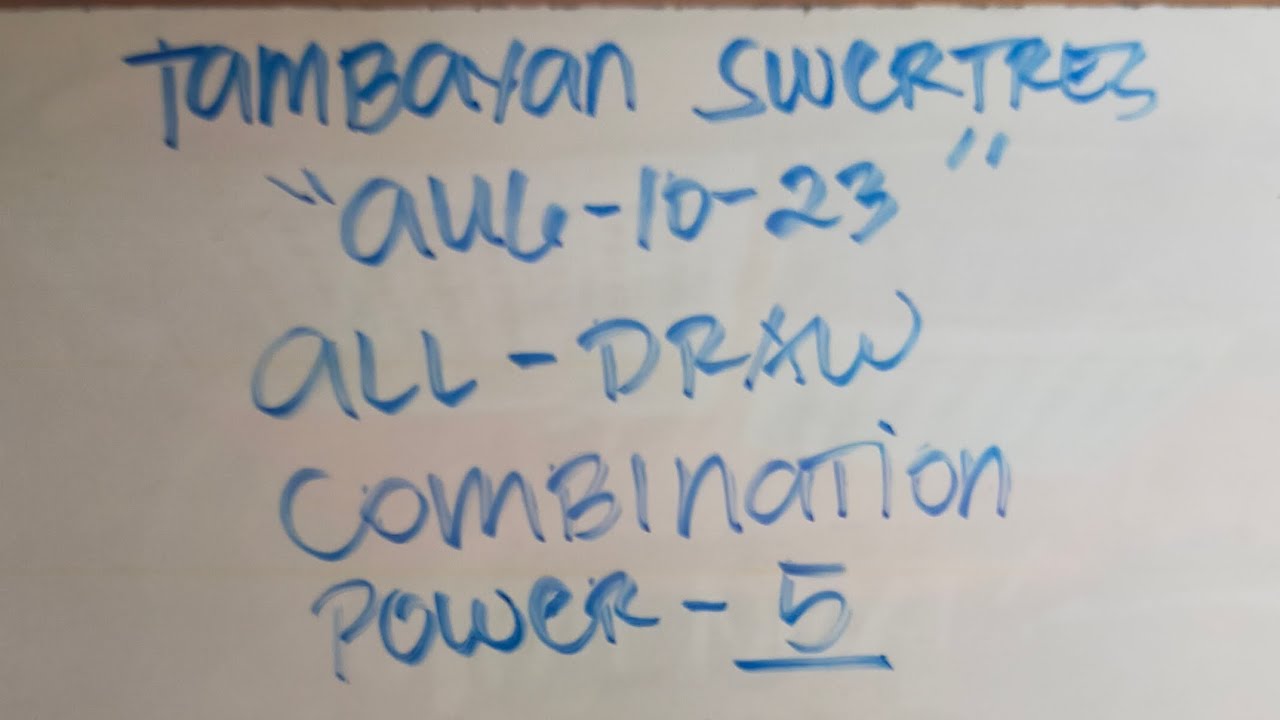 TAMBAYAN SWERTRES
"AUG-10-23"
ALL-DRAW
COMBINATION
POWER-5